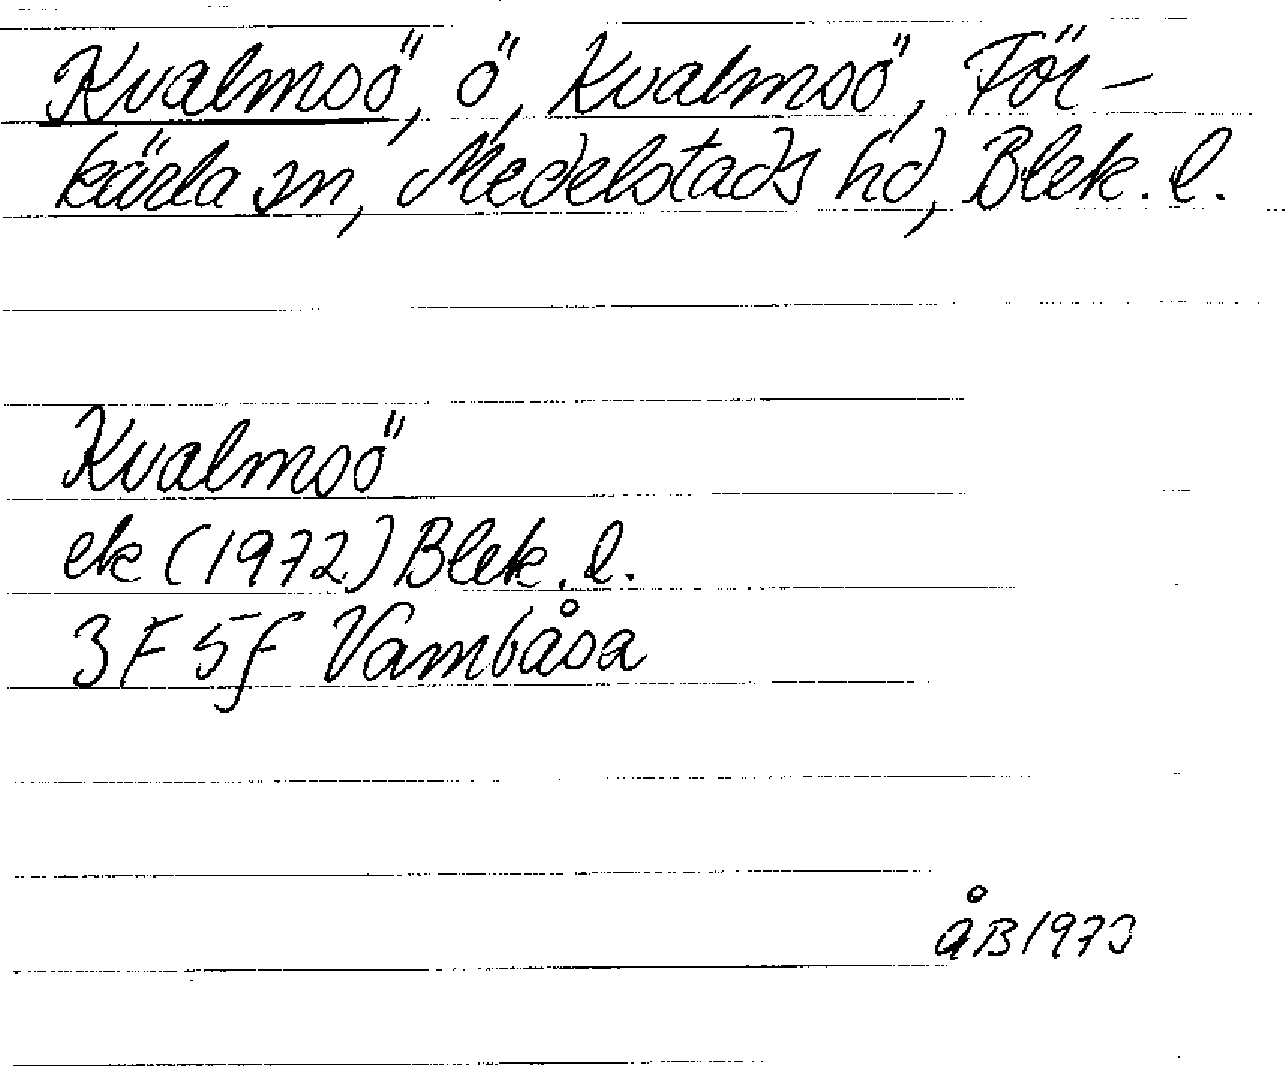 Kvalmsö, ö, Kvalmsö, För-
kärla sn, Medelstads hd, Blek. l.
Kvalmsö
ek (1972) Blek. l.
3F 5f Vambåsa
åB 1973